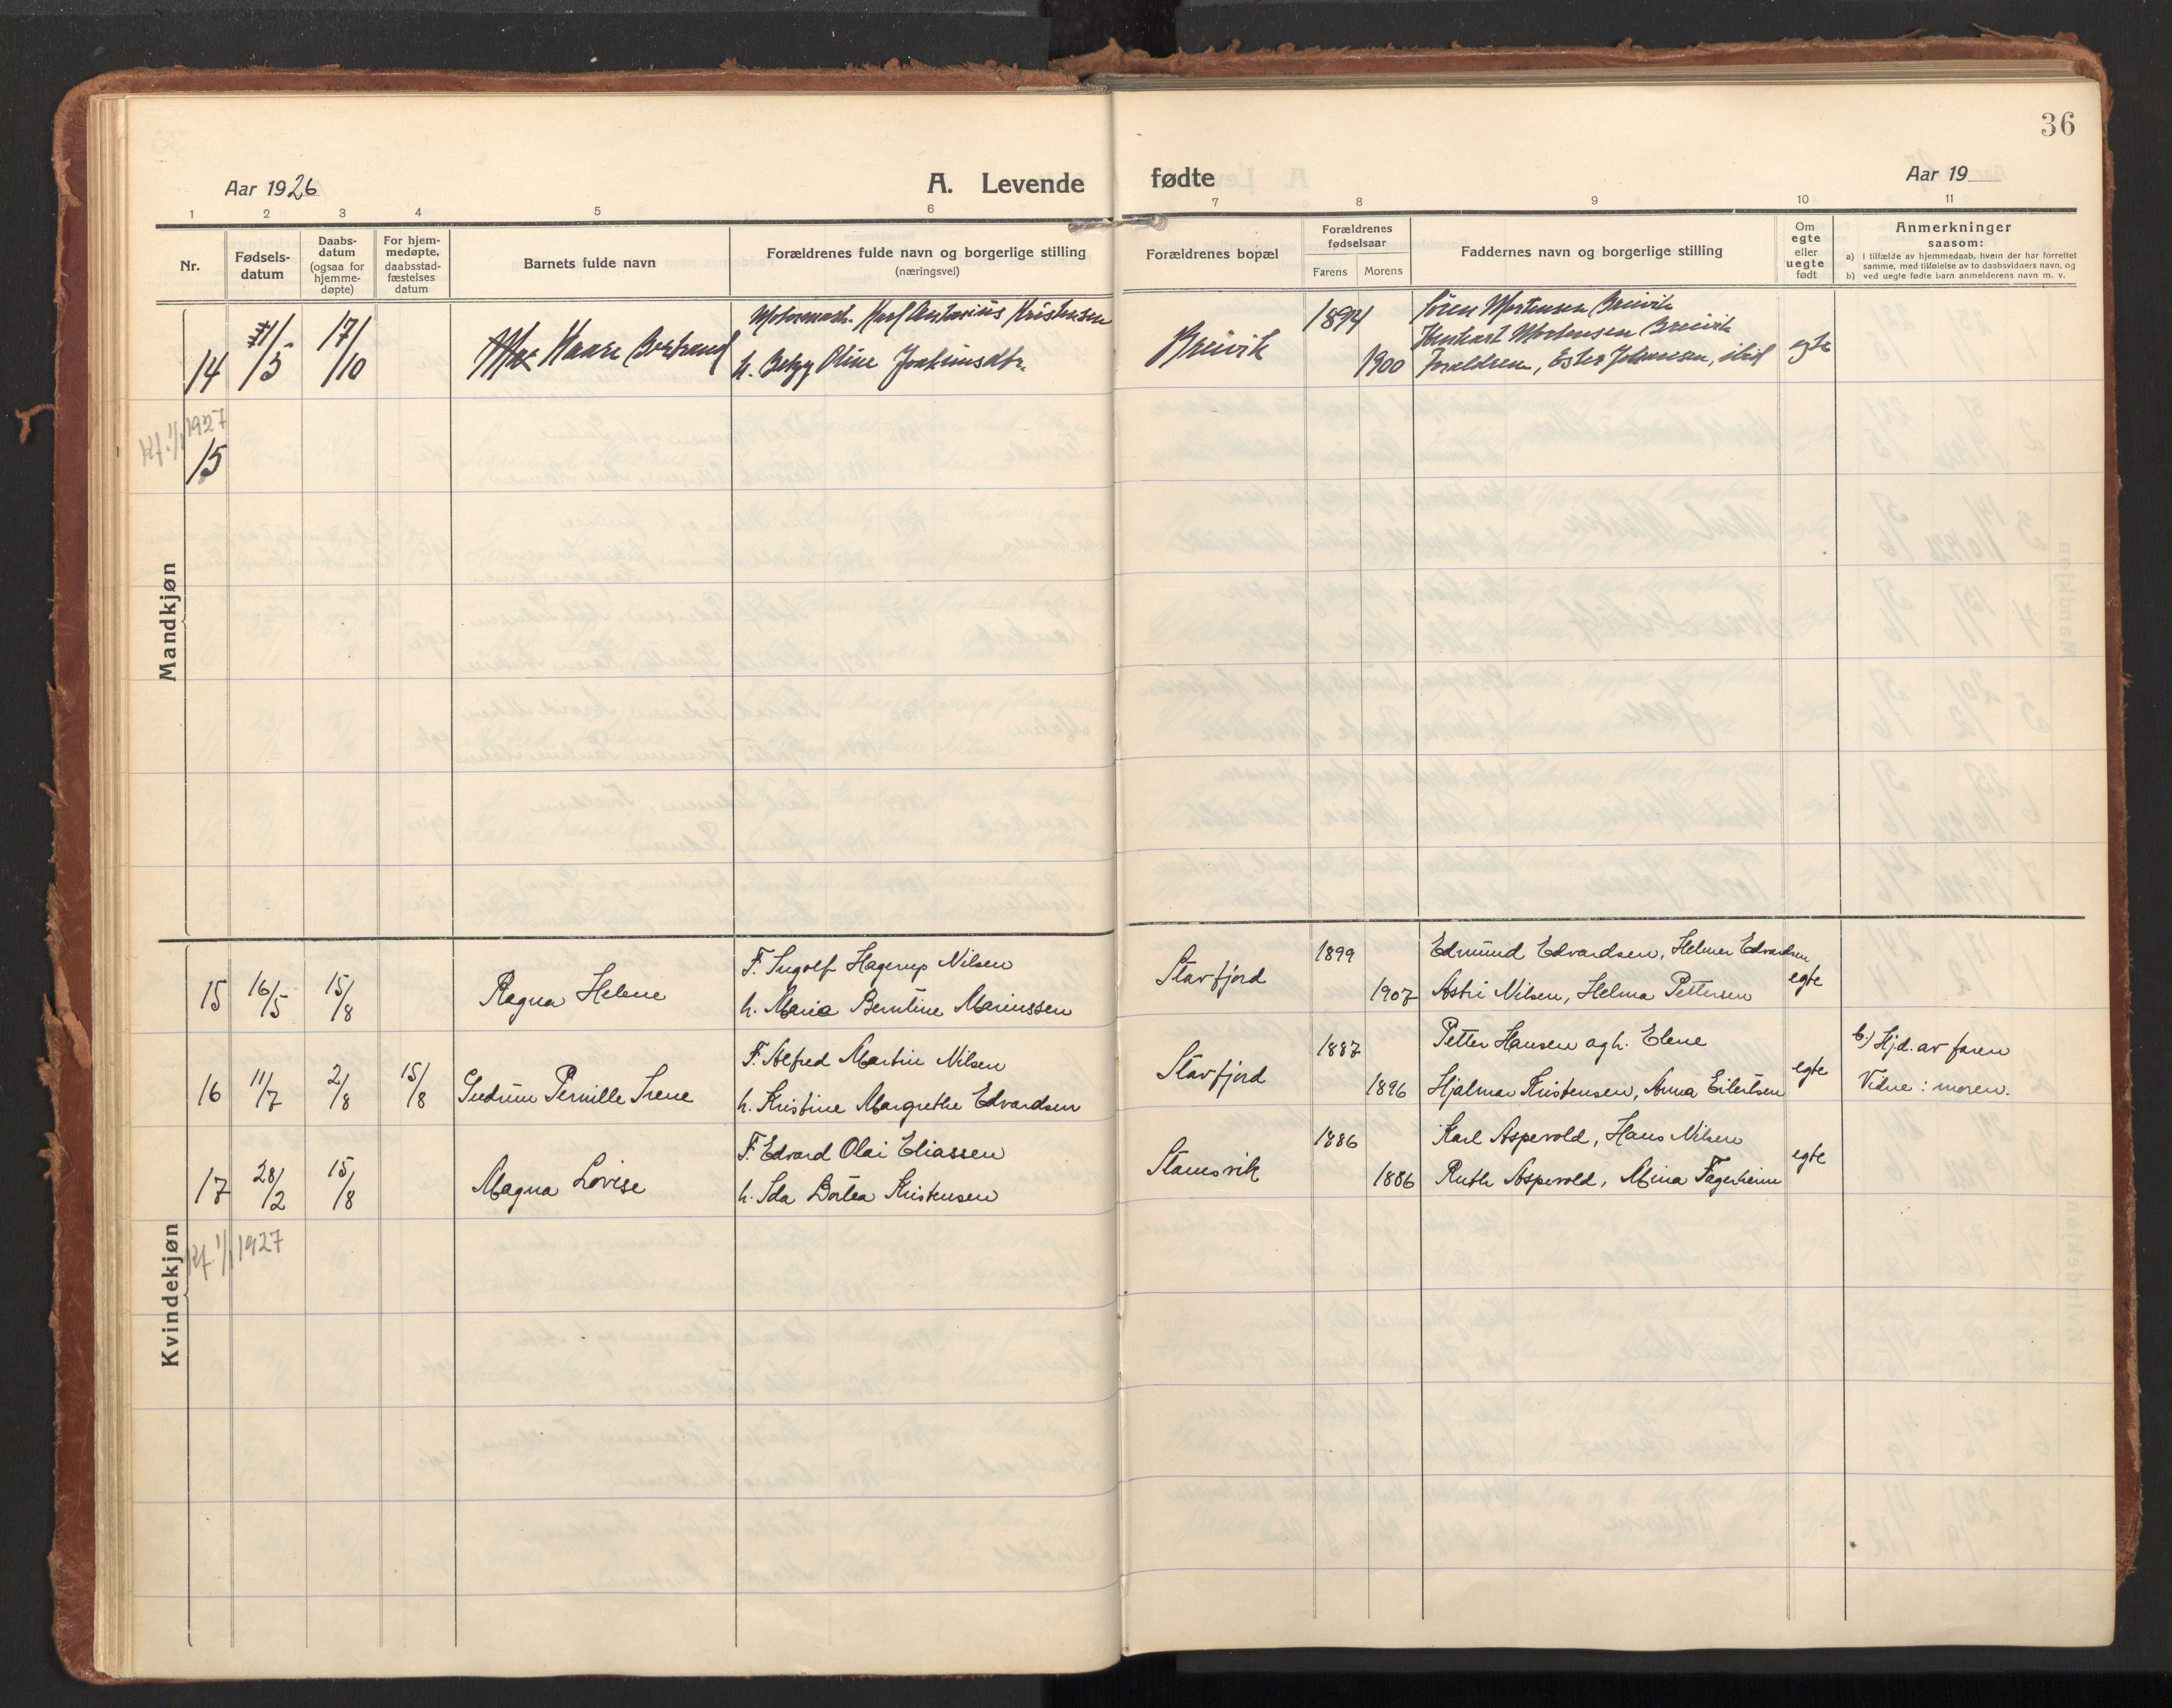 36
Aar 1926
A. Levende
fødte
Aar 19
1 2 3 4 5 6 7 8 9 10 11
Nr.
Fødsels-
datum
Daabs-
datum
(ogsaa for
hjemme-
døpte)
For hjem-
medøpte,
daabsstad-
fæstelses
datum
Barnets fulde navn
Forældrenes fulde navn og borgerlige stilling
(næringsvei)
Forældrenes bopæl
Forældrenes
fødselsaar
Farens Morens
Faddernes navn og borgerlige stilling
Om
egte
eller
uegte
født
Anmerkninger
saasom:
a) i tilfælde av hjemmedaab, hvem der har forrettet
samme, med tilføielse av to daabsvidners navn, og
b) ved uegte fødte barn anmelderens navn m. v.
Mandkjøn
14 17/10 Kaare Bertrand
Karl Antonius Kristensen
h. Oline Joakimsdtr.
Breivik
1894
1900
Søren Mortensen Breivik
Mortensen Breivik
Foreldrene, Ester Johansen, ibid
egte
1/1 1927
15
Kvindekjøn
15 16/5 15/8 Ragna Helene
F. Ingolf Hagerup Nilsen
h. Maria Berntine Mariussen
Stavfjord
1899
1907
Edmund Edvardsen, Helmer Edvardsen
Astri Nilsen, Helma Pettersen
egte
16 11/7 2/8 15/8 Gudrun Pernille Irene
F. Alfred Martin Nilsen
h. Kristine Margrethe Edvardsen
Stavfjord
1887
1896
Petter Hansen og h. Elene
Hjalmar Kristensen, Anna Eilertsen
egte
b.) Hj.d. av faren
Vidne: moren.
17 28/2 15/8 Magna Lovise
F. Edvard Olai Eliassen
h. Ida Dortea Kristensen
Stamsvik
1886
1886
Karl Aspevold, Hans Nilsen
Ruth Aspevold, Mina Fagerheim
egte
1/1 1927